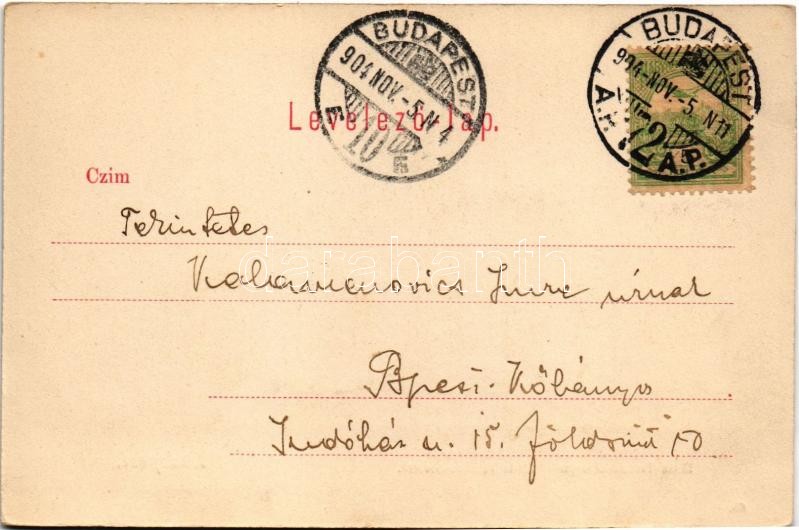 BUDAPEST
904 NOV.-5. N 4
É 10
Levelező-lap.
BUDAPEST
904-NOV.-5. N 11
72
A.P.
Czim
Tekintetes
Kalamenovics Imre úrnak
Bpest-Kőbánya
Indóház u. 15. földszint 10
darabanth